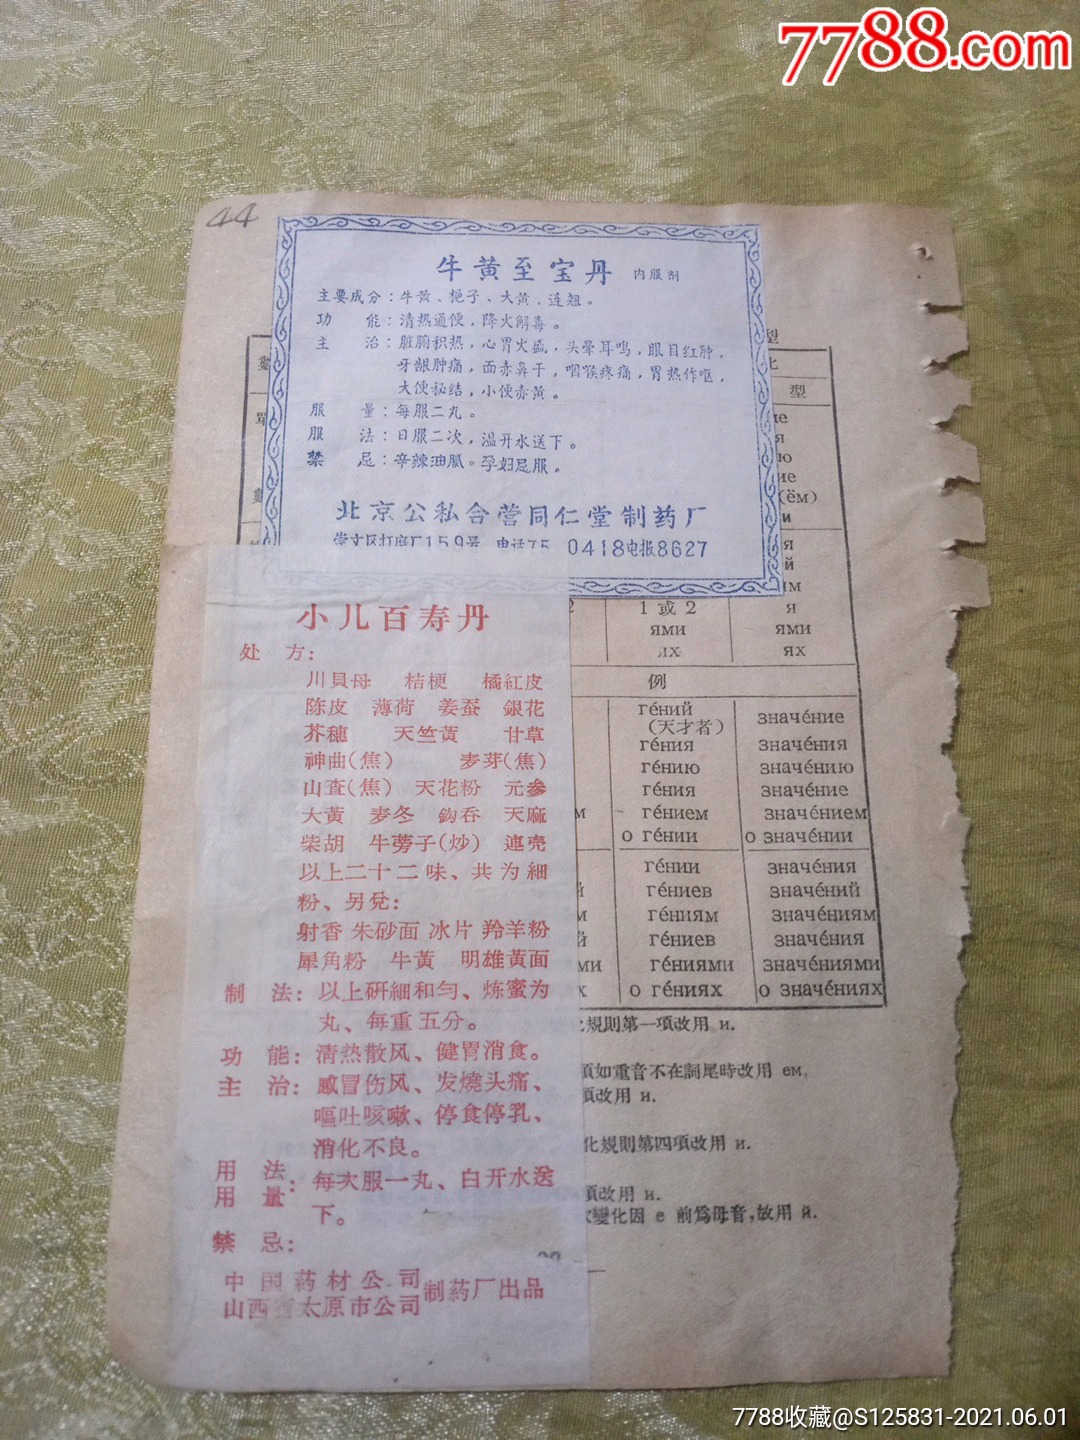 7788.com
44
牛黄至宝丹 内服剂
主要成分：牛黄、栀子、大黄、连翘。
功 能：清热通便，降火解毒。
主 治：脏腑积热，心胃火盛，头晕耳鸣，眼目红肿，
牙龈肿痛，面赤鼻干，咽喉疼痛，胃热作呕，
大便秘结，小便赤黄。
服 量：每服二丸。
服 法：日服二次，温开水送下。
禁 忌：辛辣油腻。孕妇忌服。
北京公私合营同仁堂制药厂
崇文区打磨厂159号 电话75 0418电报8627
小儿百寿丹
处 方：
川貝母 桔梗 橘紅皮
陈皮 薄荷 姜蚕 銀花
芥穗 天竺黄 甘草
神曲(焦) 麦芽(焦)
山查(焦) 天花粉 元参
大黄 麦冬 鈎吞 天麻
柴胡 牛蒡子(炒) 連壳
以上二十二味、共为細
粉、另兑：
射香 朱砂面 冰片 羚羊粉
犀角粉 牛黄 明雄黄面
制 法：以上研細和匀、炼蜜为
丸、每重五分。
功 能：清热散风、健胃消食。
主 治：感冒伤风、发燒头痛、
嘔吐咳嗽、停食停乳、
消化不良。
用 法
用 量：每次服一丸、白开水送
下。
禁 忌：
中国药材公司
山西省太原市公司
制药厂出品
型
數
型
單
(ём)
и
я
й
2 1 或 2 я
ями ями
ях ях
例
ге́ний
(天才者) значе́ние
ге́ния значе́ния
ге́нию значе́нию
ге́ния значе́ние
м ге́нием значе́нием
о ге́нии о значе́нии
ге́нии значе́ния
й ге́ниев значе́ний
м ге́ниям значе́ниям
й ге́ниев значе́ния
ми ге́ниями значе́ниями
х о ге́ниях о значе́ниях
規則第一項改用 и.
項如重音不在詞尾時改用 ем.
項改用 и.
化規則第四項改用 и.
項改用 и.
變化因 е 前爲母音，故用 й.
7788收藏@S125831-2021.06.01